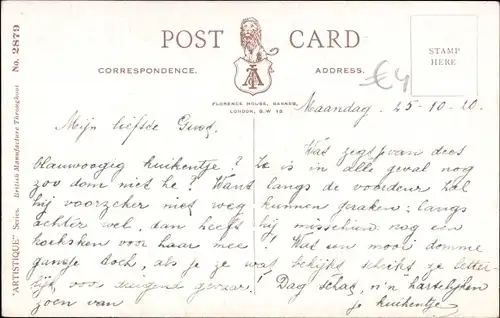 POST CARD
CORRESPONDENCE.
ADDRESS.
STAMP
HERE
FLORENCE HOUSE, BARNES,
LONDON, S.W 13.
"ARTISTIQUE" Series. British Manufacture Throughout No. 2879
€4
Maandag 25-10-20.
Mijn liefste
blauwoogig kuikentje?
zoo dom niet he? Want
hij voorzeker niet weg
achter wel, dan heeft
hoekskens voor haar mee!
gansje toch, als je ze wat
lijk, voor gevaar!
zoen van
Wat zegt van dees
Ze is in alle geval nog
langs de voordeur zal
kunnen geraken; langs
hij misschien nog een
een mooi domme
bekijkt schikt ze letter-
Dag schat, n'n hartelijken
je kuikentje